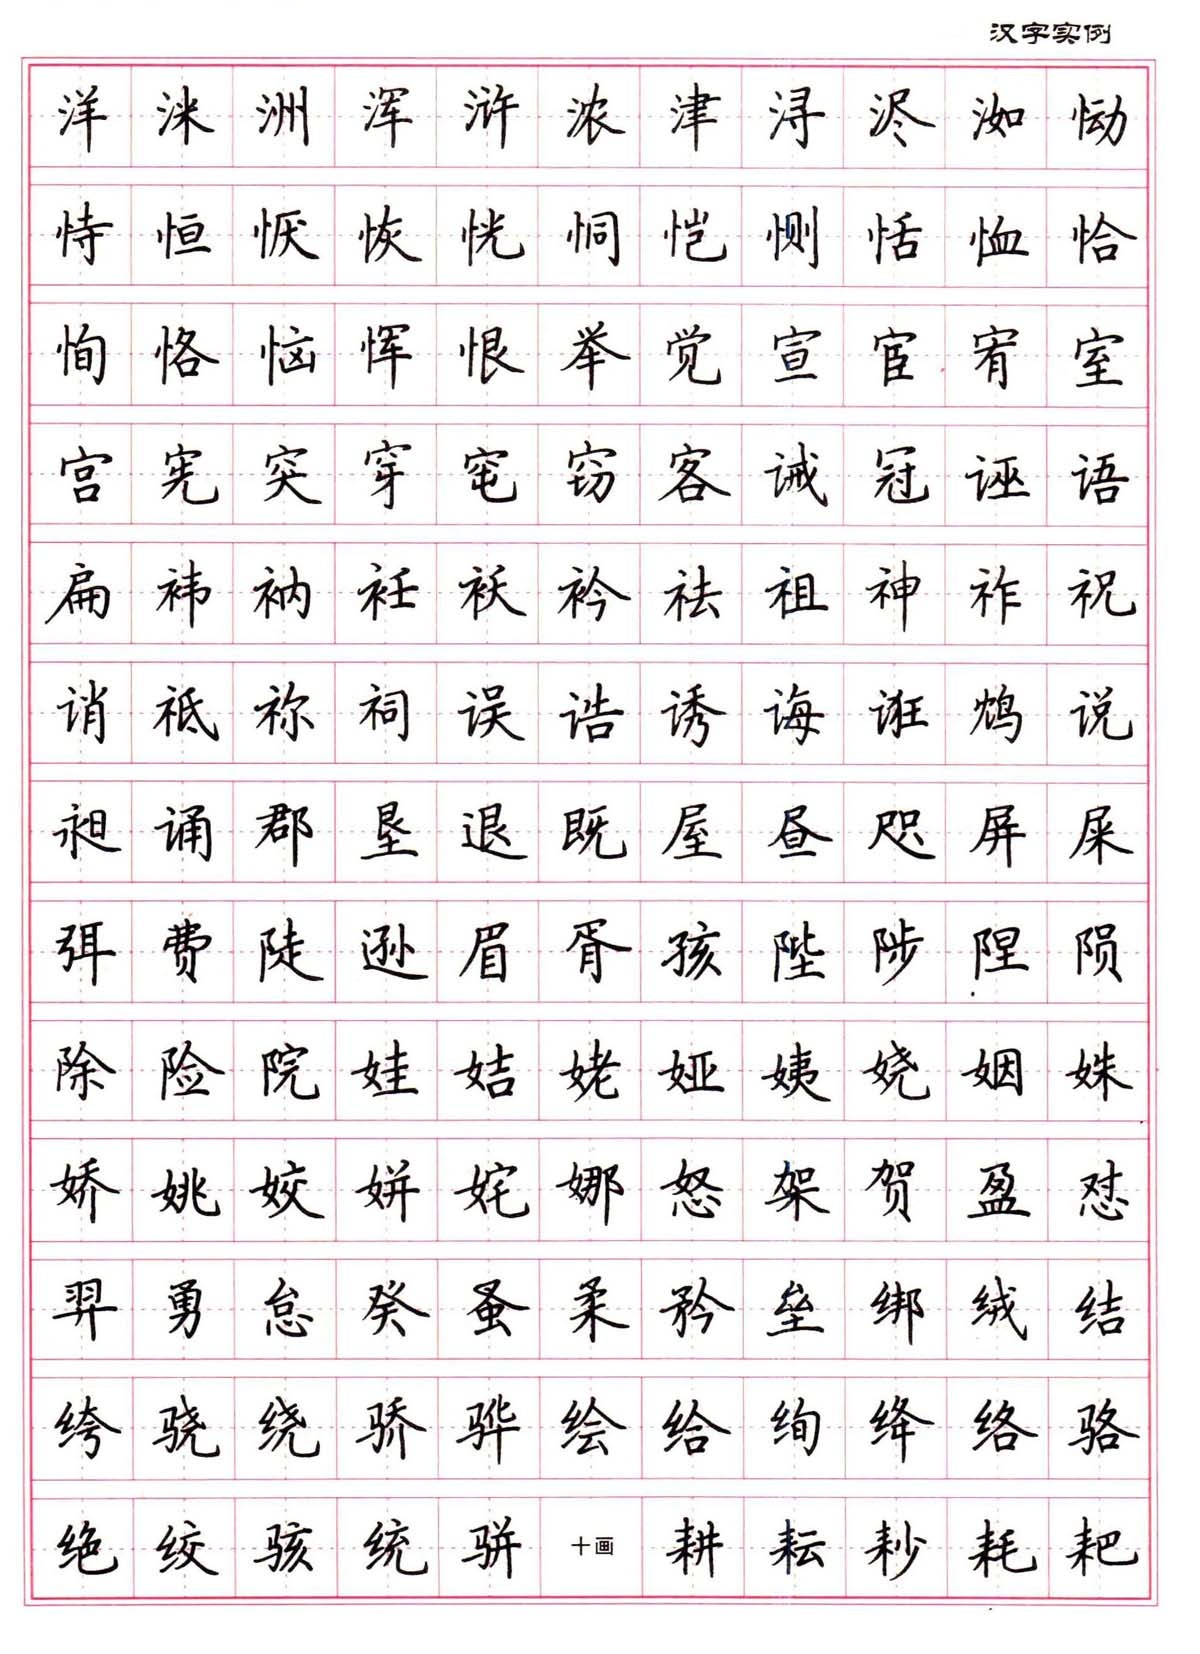 汉字实例
洋 洣 洲 浑 浒 浓 津 浔 浕 洳 恸
恃 恒 恹 恢 恍 恫 恺 恻 恬 恤 恰
恂 恪 恼 恽 恨 举 觉 宣 宦 宥 室
宫 宪 突 穿 窀 窃 客 诫 冠 诬 语
扁 袆 衲 衽 袄 衿 祛 祖 神 祚 祝
诮 祗 祢 祠 误 诰 诱 诲 诳 鸩 说
昶 诵 郡 垦 退 既 屋 昼 咫 屏 屎
弭 费 陡 逊 眉 胥 孩 陛 陟 陧 陨
除 险 院 娃 姞 姥 娅 姨 娆 姻 姝
娇 姚 姣 姘 姹 娜 怒 架 贺 盈 怼
羿 勇 怠 癸 蚤 柔 矜 垒 绑 绒 结
绔 骁 绕 骄 骅 绘 给 绚 绛 络 骆
绝 绞 骇 统 骈 十画 耕 耘 耖 耗 耙